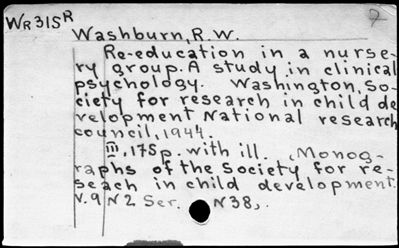 WR31SR 2
Washburn, R.W.
Re-education in a nurse-
ry group. A study in clinical
psychology. Washington, So-
ciety for research in child de
velopment National research
council, 1944.
III, 175p. with ill. Monog-
raphs of the Society for re-
seach in child development.
V.9 N2 Ser. N38,.